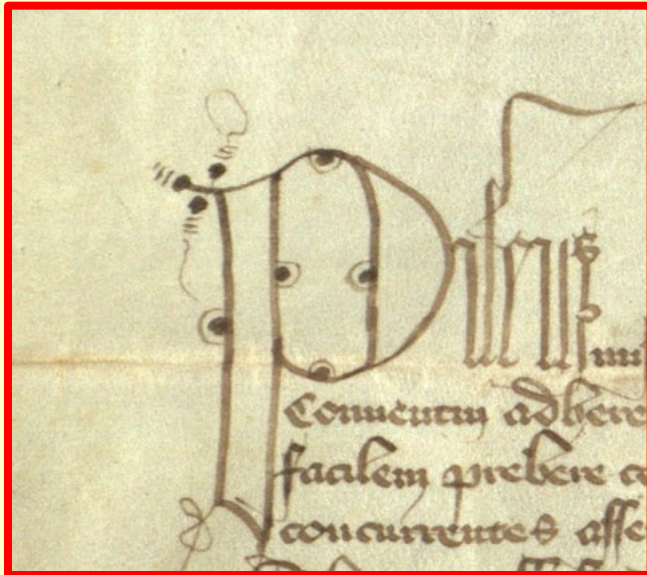 Pileus
Conuentui adhere
facilem prebere c
concurrentes asse